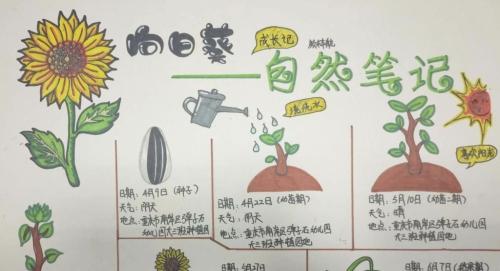 向日葵
成长记
自然笔记
浇浇水
喜欢阳光
日期：4月9日（种子）
天气：阴天
地点：重庆市南岸区弹子石
幼儿园大三班种植园
日期：4月22日（幼苗期）
天气：阴天
地点：重庆市南岸区弹子石幼儿园
大三班种植园地
日期：5月10日（幼苗期）
天气：晴
地点：重庆市南岸区弹子石幼儿园
大三班种植园地